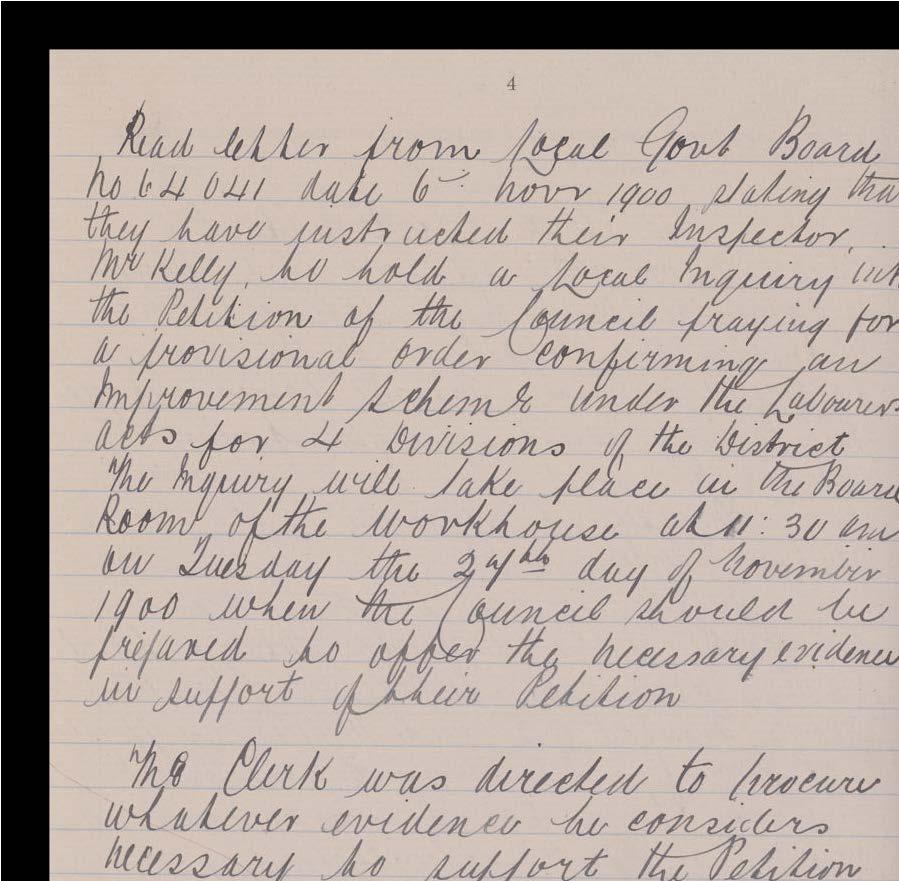 4
Read letter from Local Govt Board
No 64041 date 6th Novr 1900 stating tha
they have instructed their Inspector,
Mr Kelly, to hold a Local Inquiry int
the Petition of the Council praying for
a provisional order confirming an
Improvement Scheme under the Labourers
acts for 4 Divisions of the District
The Inquiry will take place in the Board
Room of the Workhouse at 11:30 am
on Tuesday the 27th day of November
1900 when the Council should be
prepared to offer the necessary evidence
in support of their Petition
The Clerk was directed to procure
whatever evidence he considers
necessary to support the Petition